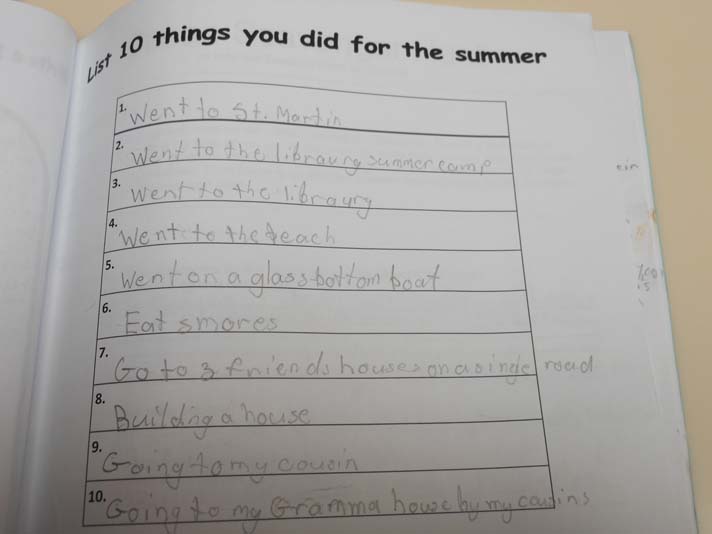 List 10 things you did for the summer
1. Went to St. Martin
2. Went to the libraurg summer camp
3. Went to the libraurg
4. Went to the
5. Went on a glass bottom boat
6. Eat smores
7. Go to 3 friends houses on a single road
8. Building a house
9. Going to my cousin
10. Going to my Gramma house by my cousins